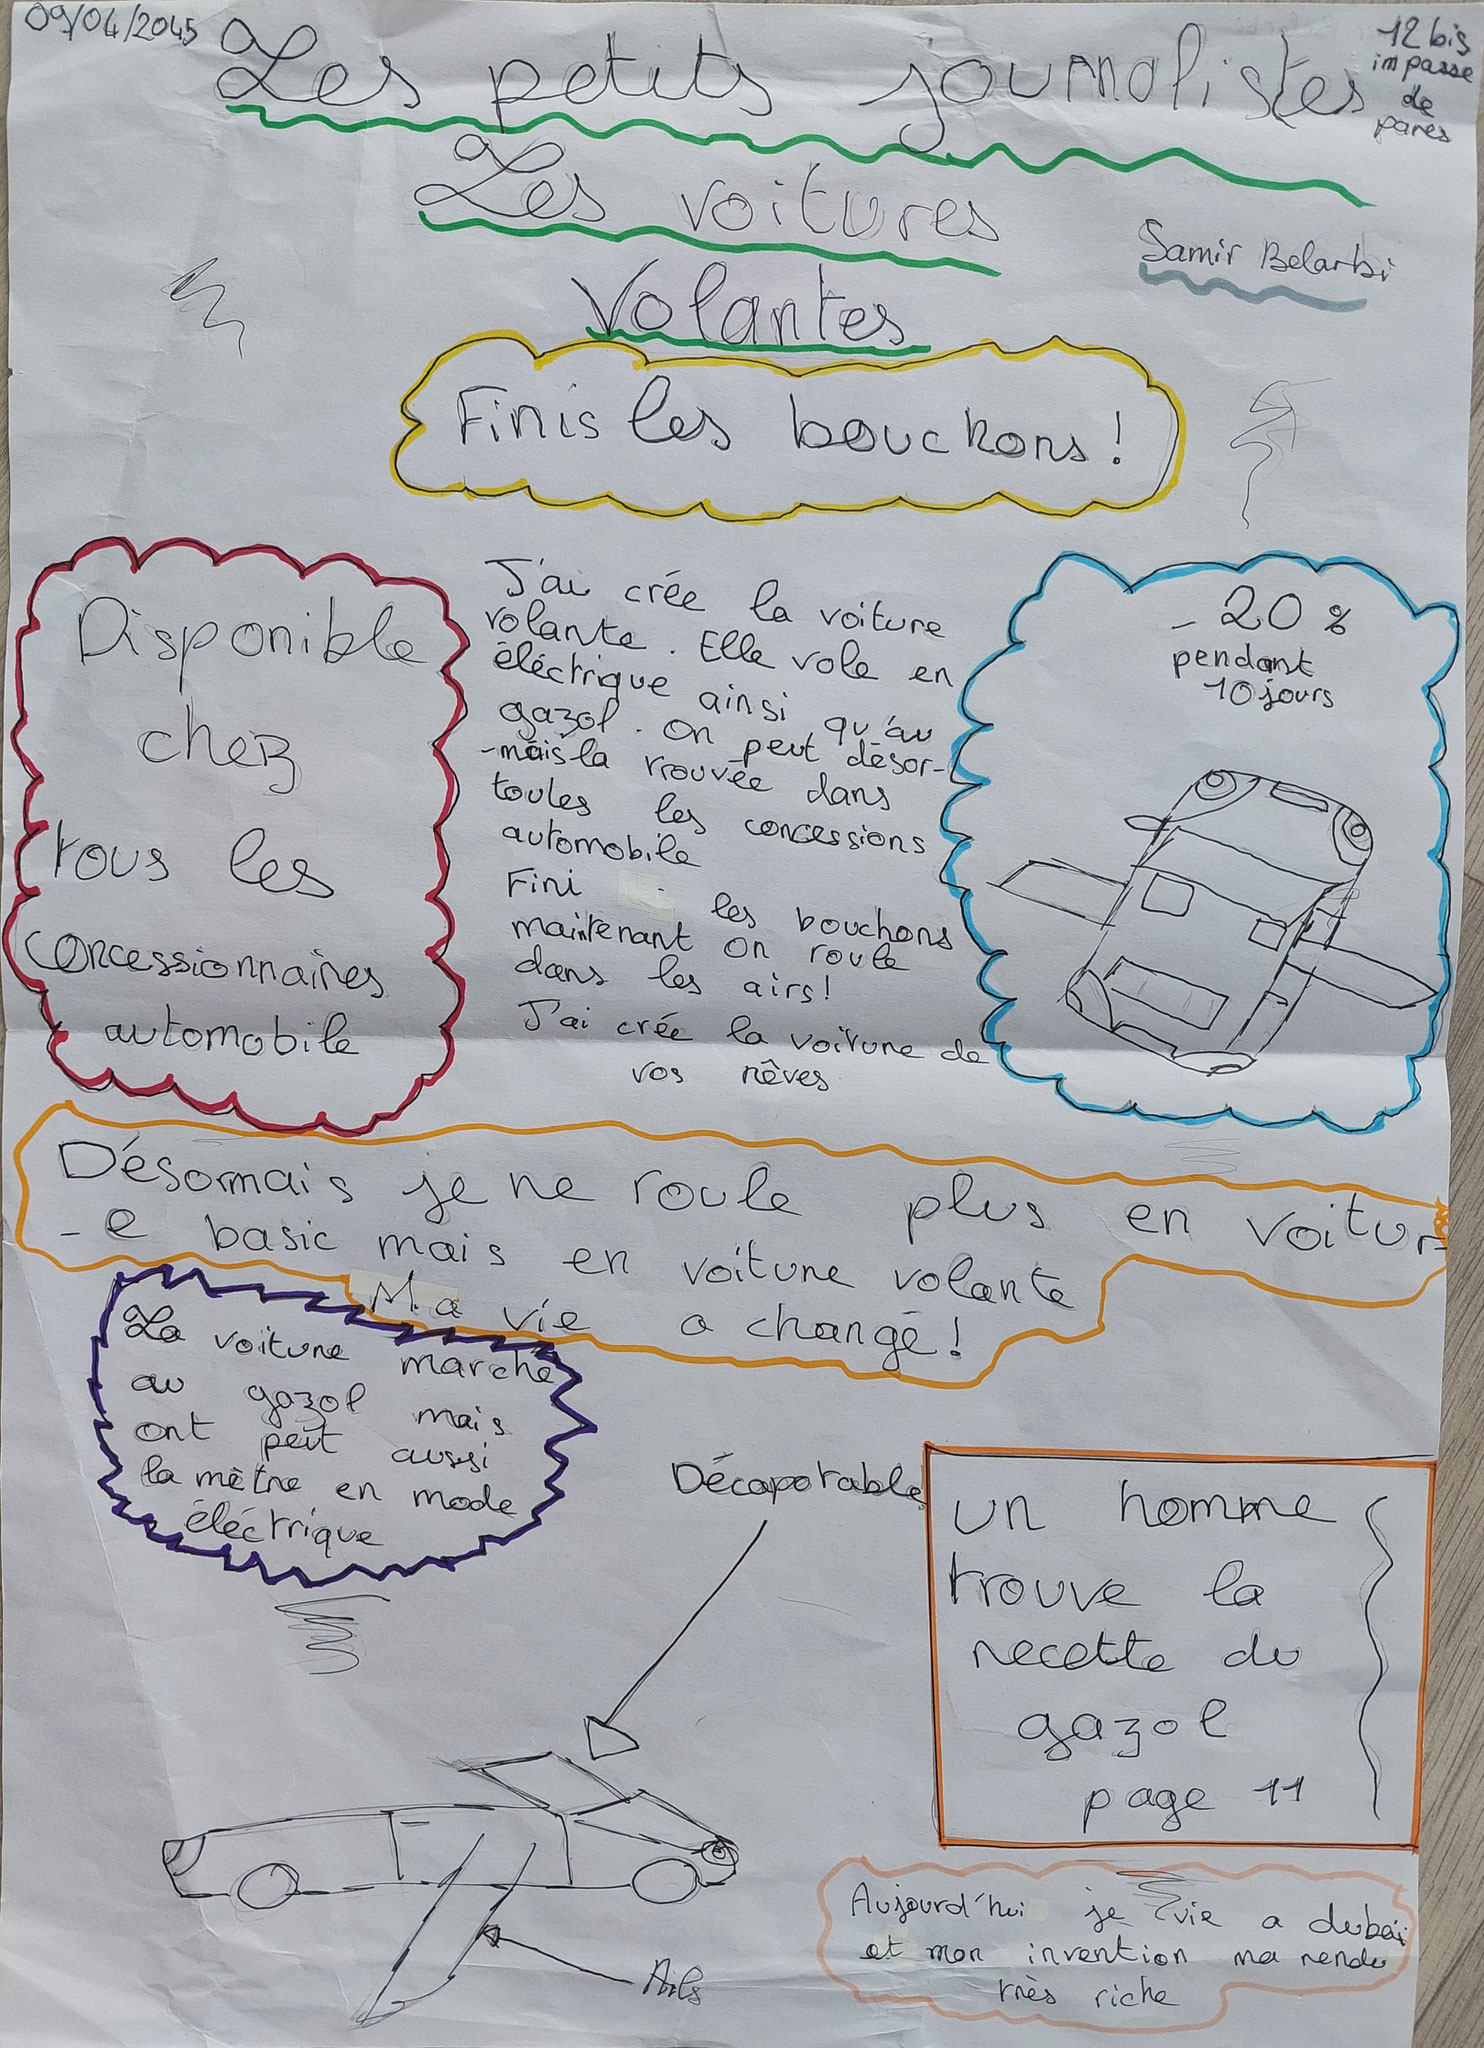 09/04/2045
12 bis
impasse
de
pares
Les petits journalistes
Les voitures
Volantes
Samir Belarbi
Finis les bouchons!
Disponible
chez
tous les
concessionnaires
automobile
J'ai crée la voiture
volante. Elle vole en
éléctrique ainsi qu'au
gazol. On peut désor-
-mais la trouvée dans
toutes les concessions
automobile
Fini les bouchons
maintenant on roule
dans les airs!
J'ai crée la voiture de
vos rêves
- 20 %
pendant
10 jours
Désormais je ne roule plus en voitur
- e basic mais en voiture volante
Ma vie a changé!
La voiture marche
au gazol mais
ont peut aussi
la mètre en mode
éléctrique
Décapotable
un homme
trouve la
recette du
gazol
page 11
Ails
Aujourd'hui je vie a dubaï
et mon invention ma rendu
très riche